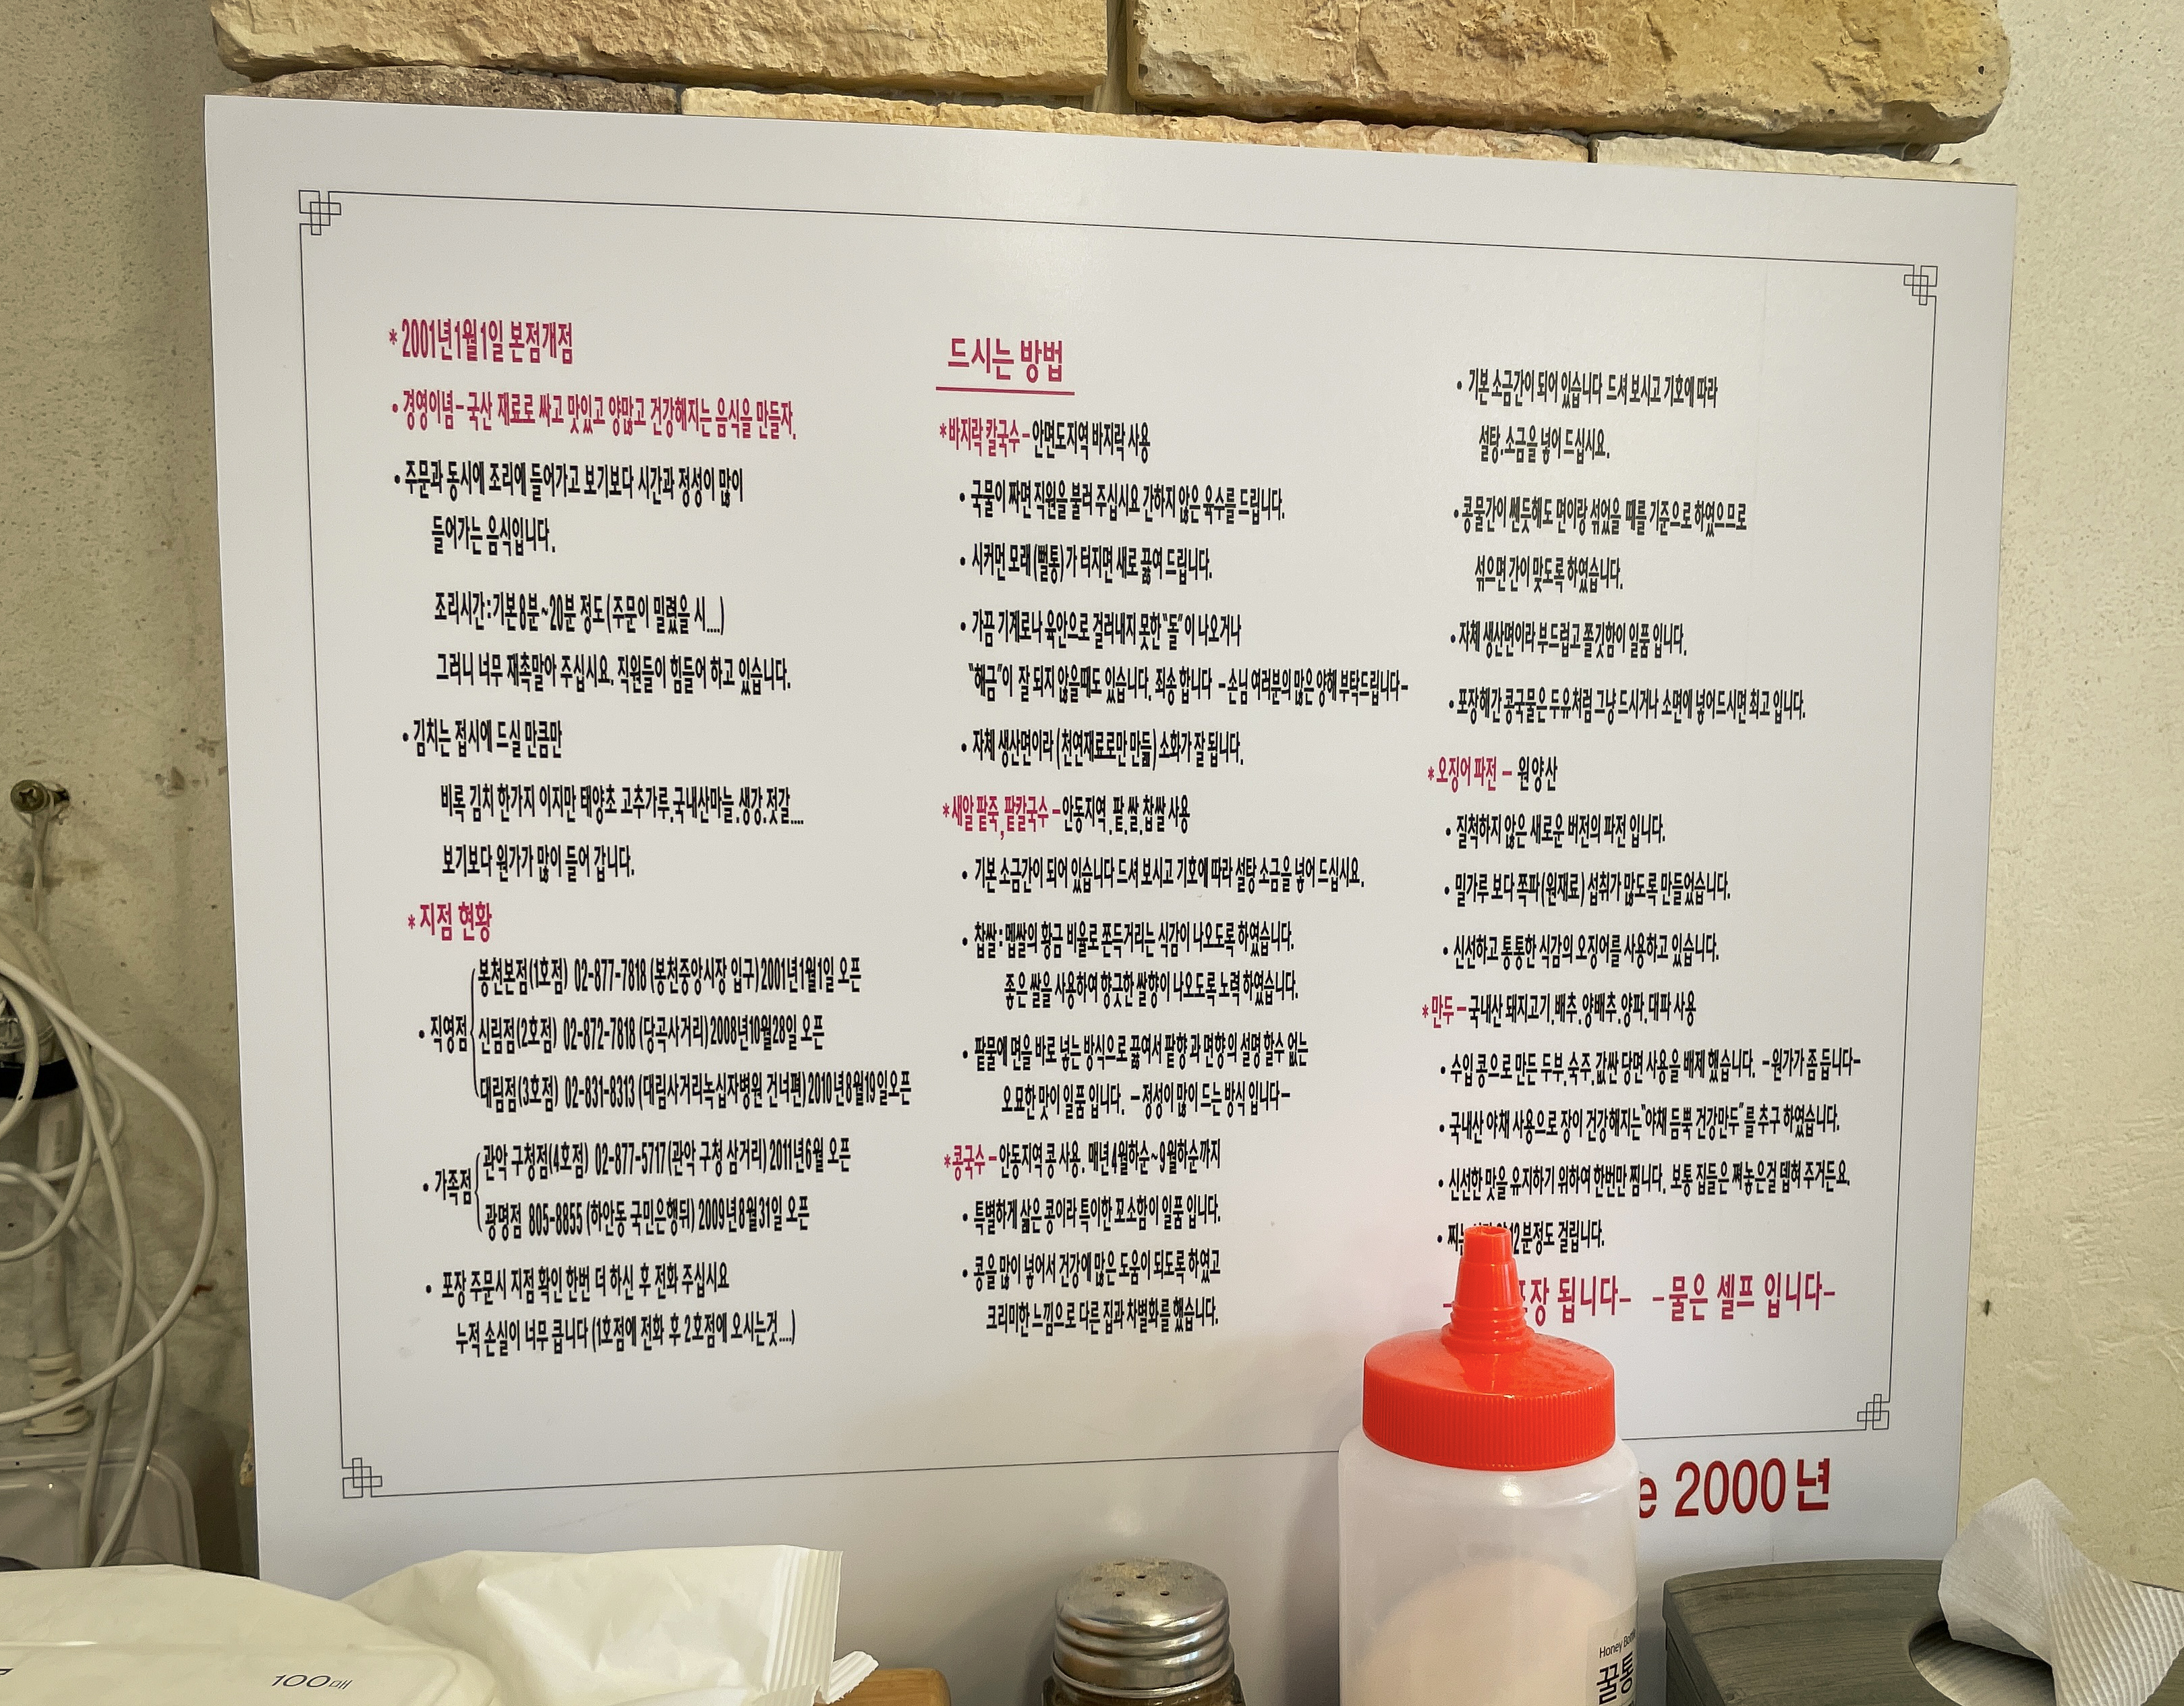 *2001년1월1일 본점개점
• 경영이념-국산 재료로 싸고 맛있고 양많고 건강해지는 음식을 만들자.
• 주문과 동시에 조리에 들어가고 보기보다 시간과 정성이 많이
들어가는 음식입니다.
조리시간:기본8분~20분 정도(주문이 밀렸을 시....)
그러니 너무 재촉말아 주십시요. 직원들이 힘들어 하고 있습니다.
• 김치는 접시에 드실 만큼만
비록 김치 한가지 이지만 태양초 고추가루.국내산마늘.생강.젓갈....
보기보다 원가가 많이 들어 갑니다.
*지점 현황
• 직영점
봉천본점(1호점) 02-877-7818 (봉천중앙시장 입구)2001년1월1일 오픈
신림점(2호점) 02-872-7818 (당곡사거리)2008년10월28일 오픈
대림점(3호점) 02-831-8313 (대림사거리녹십자병원 건너편)2010년8월19일오픈
• 가족점
관악 구청점(4호점) 02-877-5717(관악 구청 삼거리)2011년6월 오픈
광명점 805-8855 (하안동 국민은행뒤)2009년8월31일 오픈
• 포장 주문시 지점 확인 한번 더 하신 후 전화 주십시요
누적 손실이 너무 큽니다(1호점에 전화 후 2호점에 오시는것....)
드시는 방법
*바지락 칼국수-안면도지역 바지락 사용
• 국물이 짜면 직원을 불러 주십시요 간하지 않은 육수를 드립니다.
• 시커먼 모래(뻘통)가 터지면 새로 끓여 드립니다.
• 가끔 기계로나 육안으로 걸러내지 못한"돌"이 나오거나
"해금"이 잘 되지 않을때도 있습니다. 죄송 합니다 -손님 여러분의 많은 양해 부탁드립니다-
• 자체 생산면이라(천연재료로만 만듦)소화가 잘 됩니다.
*새알 팥죽,팥칼국수-안동지역.팥.쌀.찹쌀 사용
• 기본 소금간이 되어 있습니다 드셔 보시고 기호에 따라 설탕 소금을 넣어 드십시요.
• 찹쌀:멥쌀의 황금 비율로 쫀득거리는 식감이 나오도록 하였습니다.
좋은 쌀을 사용하여 향긋한 쌀향이 나오도록 노력 하였습니다.
• 팥물에 면을 바로 넣는 방식으로 끓여서 팥향 과 면향의 설명 할수 없는
오묘한 맛이 일품 입니다. -정성이 많이 드는 방식 입니다-
*콩국수-안동지역 콩 사용. 매년4월하순~9월하순까지
• 특별하게 삶은 콩이라 특이한 꼬소함이 일품 입니다.
• 콩을 많이 넣어서 건강에 많은 도움이 되도록 하였고
크리미한 느낌으로 다른 집과 차별화를 했습니다.
• 기본 소금간이 되어 있습니다 드셔 보시고 기호에 따라
설탕.소금을 넣어 드십시요.
• 콩물간이 쎈듯해도 면이랑 섞었을 때를 기준으로 하였으므로
섞으면 간이 맞도록 하였습니다.
• 자체 생산면이라 부드럽고 쫄깃함이 일품 입니다.
• 포장해간 콩국물은 두유처럼 그냥 드시거나 소면에 넣어드시면 최고 입니다.
*오징어 파전 - 원양산
• 질척하지 않은 새로운 버전의 파전 입니다.
• 밀가루 보다 쪽파(원재료)섭취가 많도록 만들었습니다.
• 신선하고 통통한 식감의 오징어를 사용하고 있습니다.
*만두-국내산 돼지고기.배추.양배추.양파.대파 사용
• 수입 콩으로 만든 두부.숙주.값싼 당면 사용을 배제 했습니다. -원가가 좀 듭니다-
• 국내산 야채 사용으로 장이 건강해지는"야채 듬뿍 건강만두"를 추구 하였습니다.
• 신선한 맛을 유지하기 위하여 한번만 찜니다. 보통 집들은 쪄놓은걸 뎁혀 주거든요.
• 12분정도 걸립니다.
됩니다- -물은 셀프 입니다-
2000년
100매
Honey
꿀통